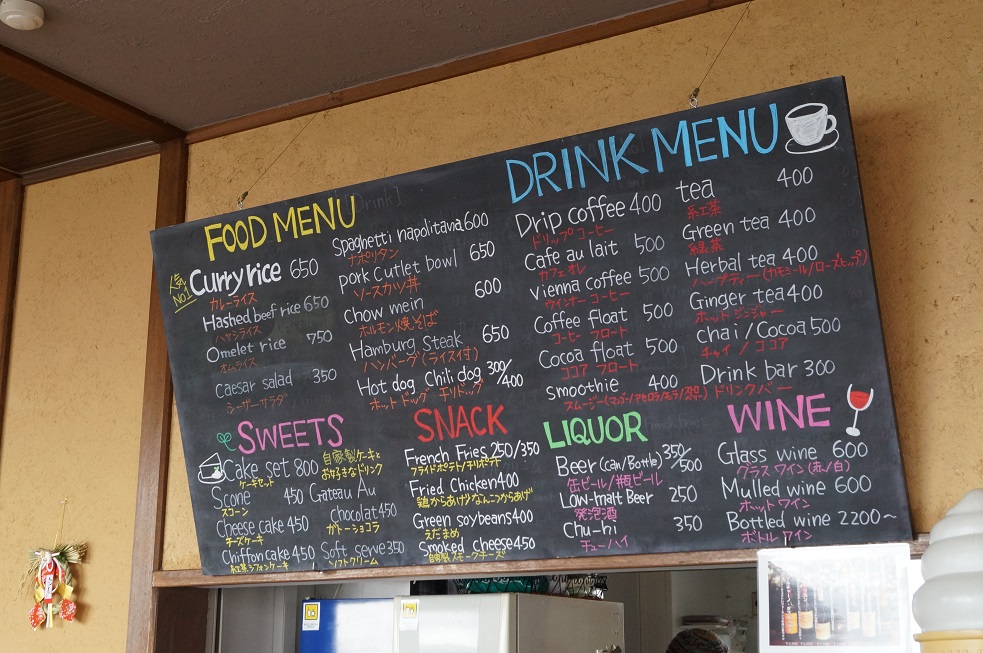 FOOD MENU
人気No.1
Curry rice 650
カレーライス
Hashed beef rice 650
ハヤシライス
Omelet rice 750
オムライス
Caesar salad 350
シーザーサラダ
Spaghetti napolitana 600
ナポリタン
pork cutlet bowl 650
ソースカツ丼
Chow mein 600
ホルモン焼そば
Hamburg Steak 650
ハンバーグ(ライス付)
Hot dog Chili dog 300/400
ホットドッグ チリドッグ
DRINK MENU
Drip coffee 400
ドリップコーヒー
Cafe au lait 500
カフェオレ
Vienna coffee 500
ウインナーコーヒー
Coffee float 500
コーヒーフロート
Cocoa float 500
ココアフロート
smoothie 400
tea 400
紅茶
Green tea 400
緑茶
Herbal tea 400
ハーブティー(カモミール/ローズヒップ)
Ginger tea 400
ホットジンジャー
chai/Cocoa 500
チャイ/ココア
Drink bar 300
ドリンクバー
SWEETS
Cake set 800
ケーキセット
自家製ケーキと
お好きなドリンク
Scone 450
スコーン
Cheese cake 450
チーズケーキ
Chiffon cake 450
紅茶シフォンケーキ
Gateau Au
Chocolat 450
ガトーショコラ
Soft serve 350
ソフトクリーム
SNACK
French Fries 250/350
フライドポテト/チリポテト
Fried Chicken 400
鶏からあげ/なんこつからあげ
Green soybeans 400
えだまめ
Smoked cheese 450
自家製スモークチーズ
LIQUOR
Beer (can/Bottle) 350/500
缶ビール/瓶ビール
Low-malt Beer 250
発泡酒
Chu-hi 350
チューハイ
WINE
Glass wine 600
グラスワイン(赤/白)
Mulled wine 600
ホットワイン
Bottled wine 2200~
ボトルワイン